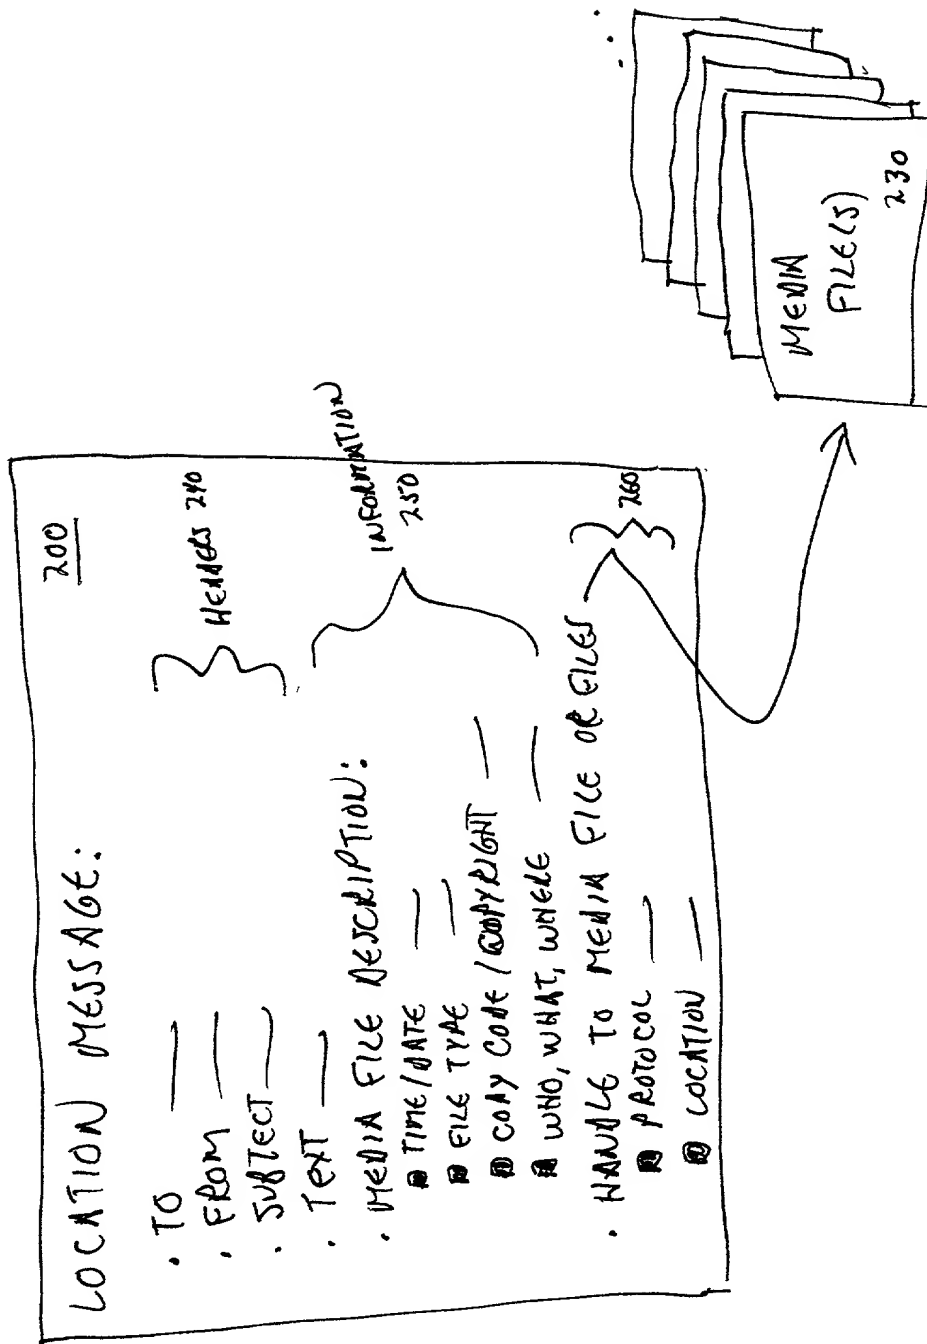 LOCATION MESSAGE: 200
· TO
· FROM
· SUBJECT
HEADERS 240
· TEXT
· MEDIA FILE DESCRIPTION:
TIME/DATE
FILE TYPE
COPY CODE / COPYRIGHT
WHO, WHAT, WHERE
INFORMATION
250
· HANDLE TO MEDIA FILE OR FILES
PROTOCOL
LOCATION
260
MEDIA
FILE(S)
230